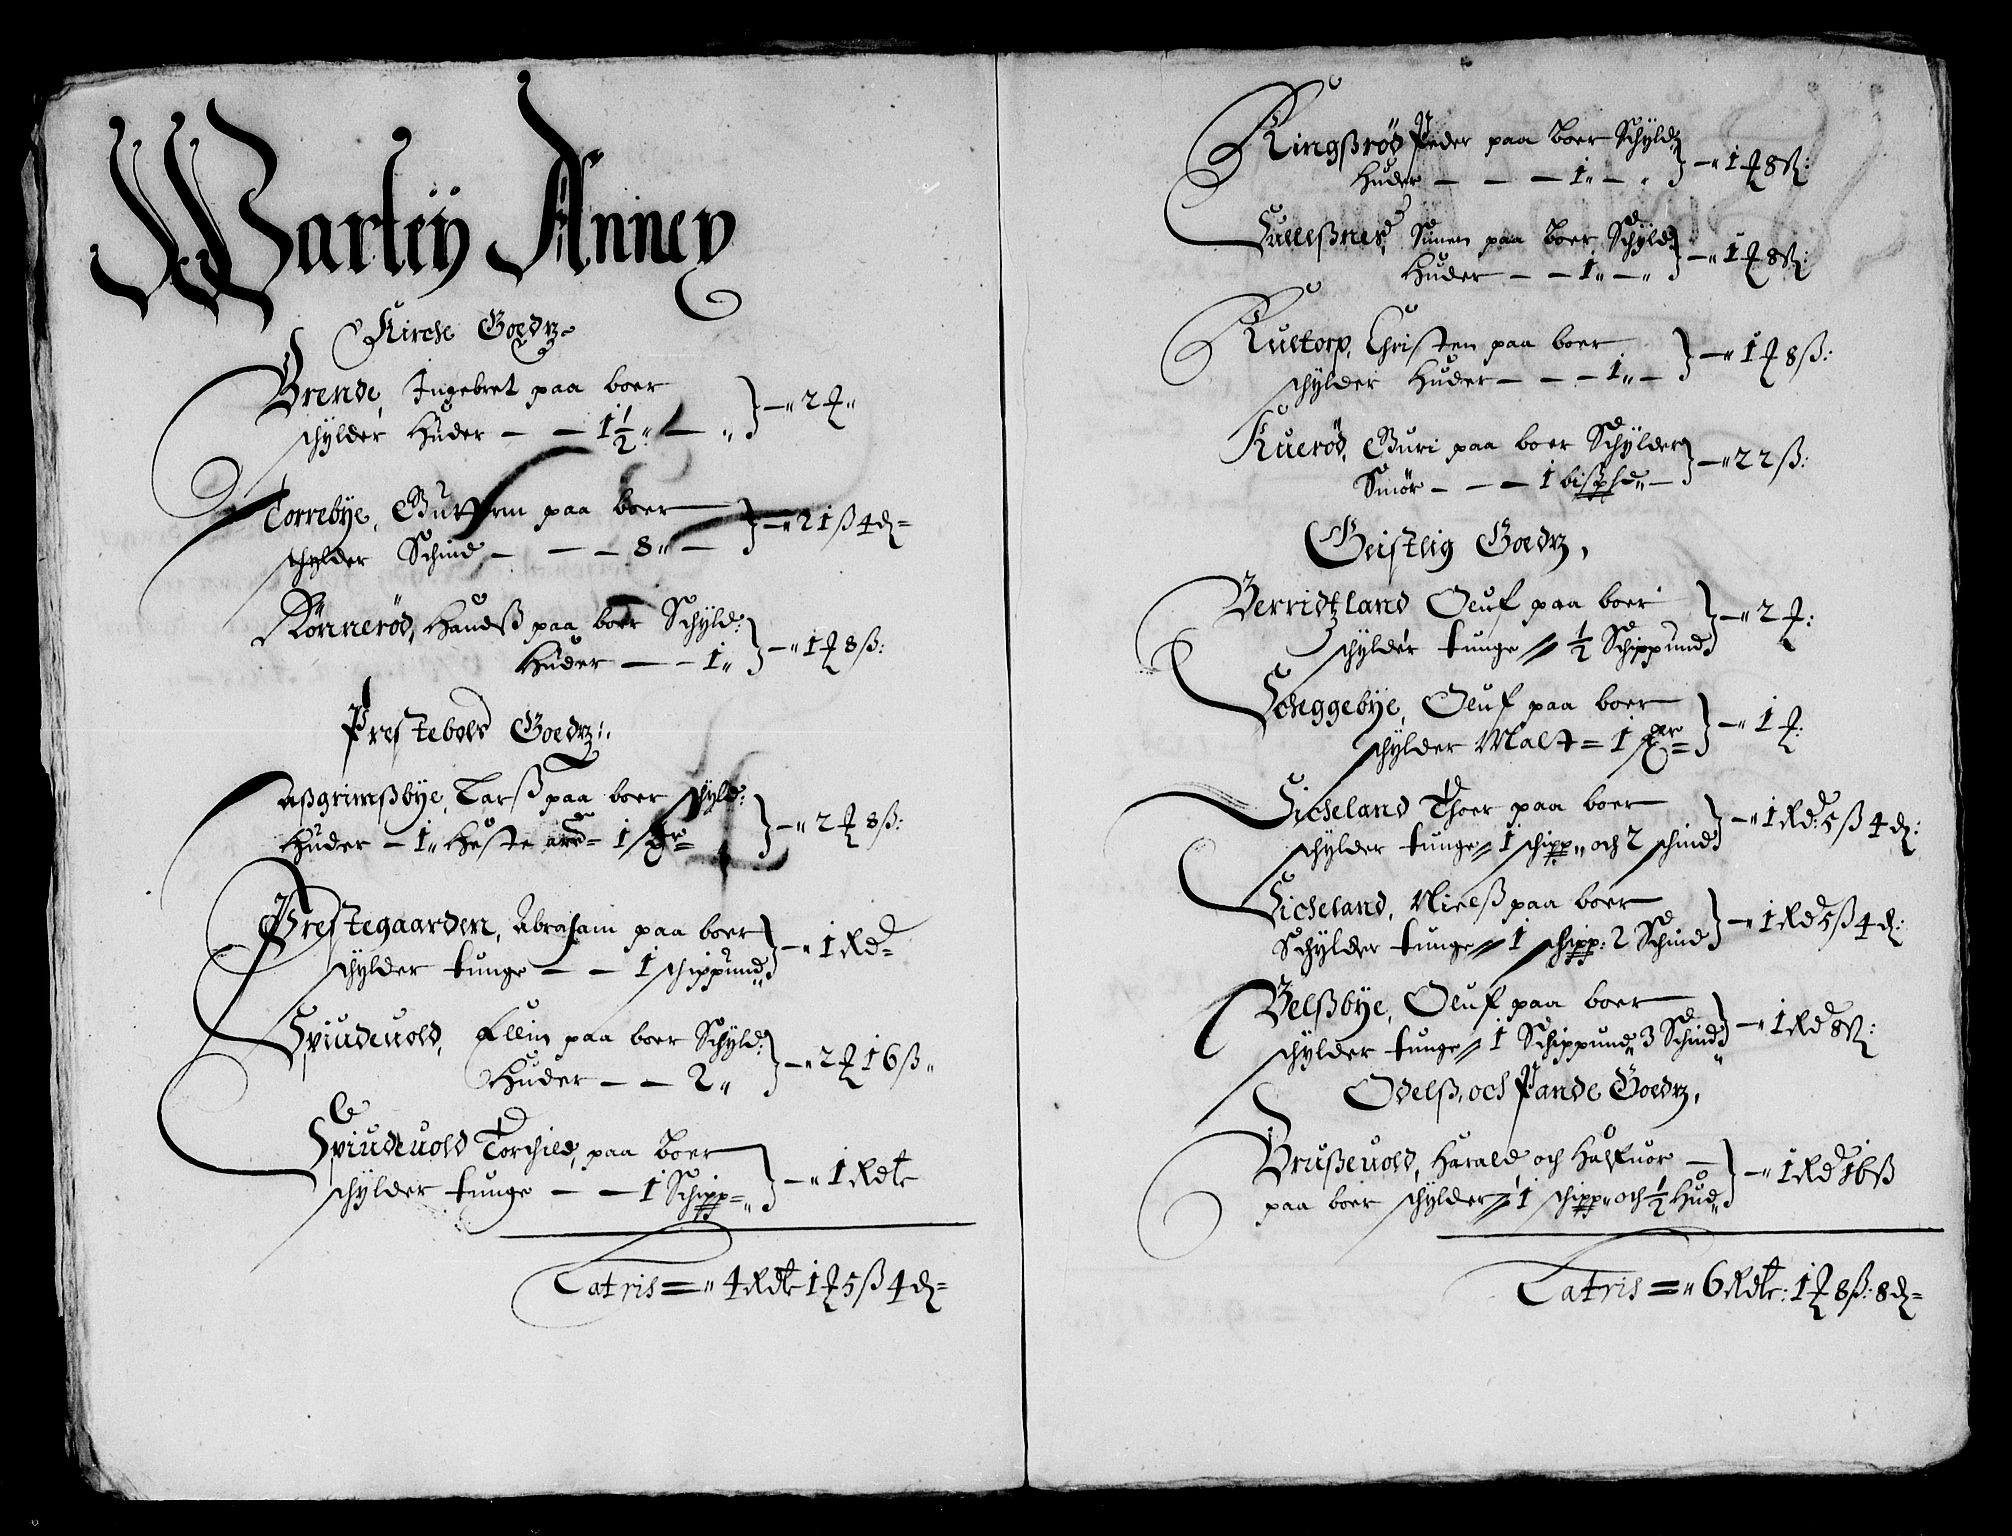 Warteÿ Anney
Kirche Goedtz
Brende, Ingebret paa boer
schylder Huder — — 1½ „ — „ } — „ 2 ₰ „
Torrebÿe, Guttorm paa boer
schylder Schind — — — 8 „ — } — „ 21 ß 4 d =
Rønnerød, Handß paa boer Schÿld:
Huder — — 1 „ } — „ 1 ₰ 8 ß:
Prestebold Goedtz:
Aßgrimßbÿe, Larß paa boer schÿld:
Huder — 1 „ Heste = 1 } — „ 2 ₰ 8 ß:
Prestegaarden, Abraham paa boer
schÿlder tunge — — 1 schippund } — „ 1 Rd =
Spiudeuold, Ellin paa boer Schÿld:
Huder — — 2 „ } — „ 2 ₰ 16 ß „
Spiudeuold Torchild, paa boer
schÿlder tunge — — 1 Schipp = „ } — „ 1 Rdlr
Latris = „ 4 Rdlr 1 ₰ 5 ß 4 d =
Kingßrød Peder paa boer Schÿld:
Huder — — — 1 „ — „ } — „ 1 ₰ 8 ß:
Sunen paa boer Schÿld
Huder — — 1 „ — „ } — „ 1 ₰ 8 ß:
Kultorp, Christen paa boer
schÿlder Huder — — — 1 „ — } — „ 1 ₰ 8 ß:
Kuerød, Guri paa boer Schÿlder
Smør — — — 1 bißpd „ — } — „ 22 ß:
Geistlig Goedtz,
Berridtzland Oluf paa boer
schÿlder tunge ½ Schippund } — „ 2 ₰:
Scheggebÿe, Oluf paa boer
schÿlder Malt = 1 = } — „ 1 ₰:
Sicheland Thoer paa boer
schÿlder tunge 1 schipp „ och 2 schind } — „ 1 Rd: 5 ß 4 d:
Sicheland, Nielß paa boer
Schÿlder tunge 1 schipp: 2 Schind } — „ 1 Rd 5 ß 4 d:
Belßbÿe, Oluf paa boer
schÿlder tunge 1 Schippund „ 3 Schind } — „ 1 Rd 8 ß:
Odelß, och Pande Goedtz,
Brußeuold, Harald och Halfuor —
paa boer schÿlder 1 schipp „ och ½ Hud „ } — „ 1 Rd 16 ß
Latris = „ 6 Rdlr: 1 ₰ 8 ß: 8 d =